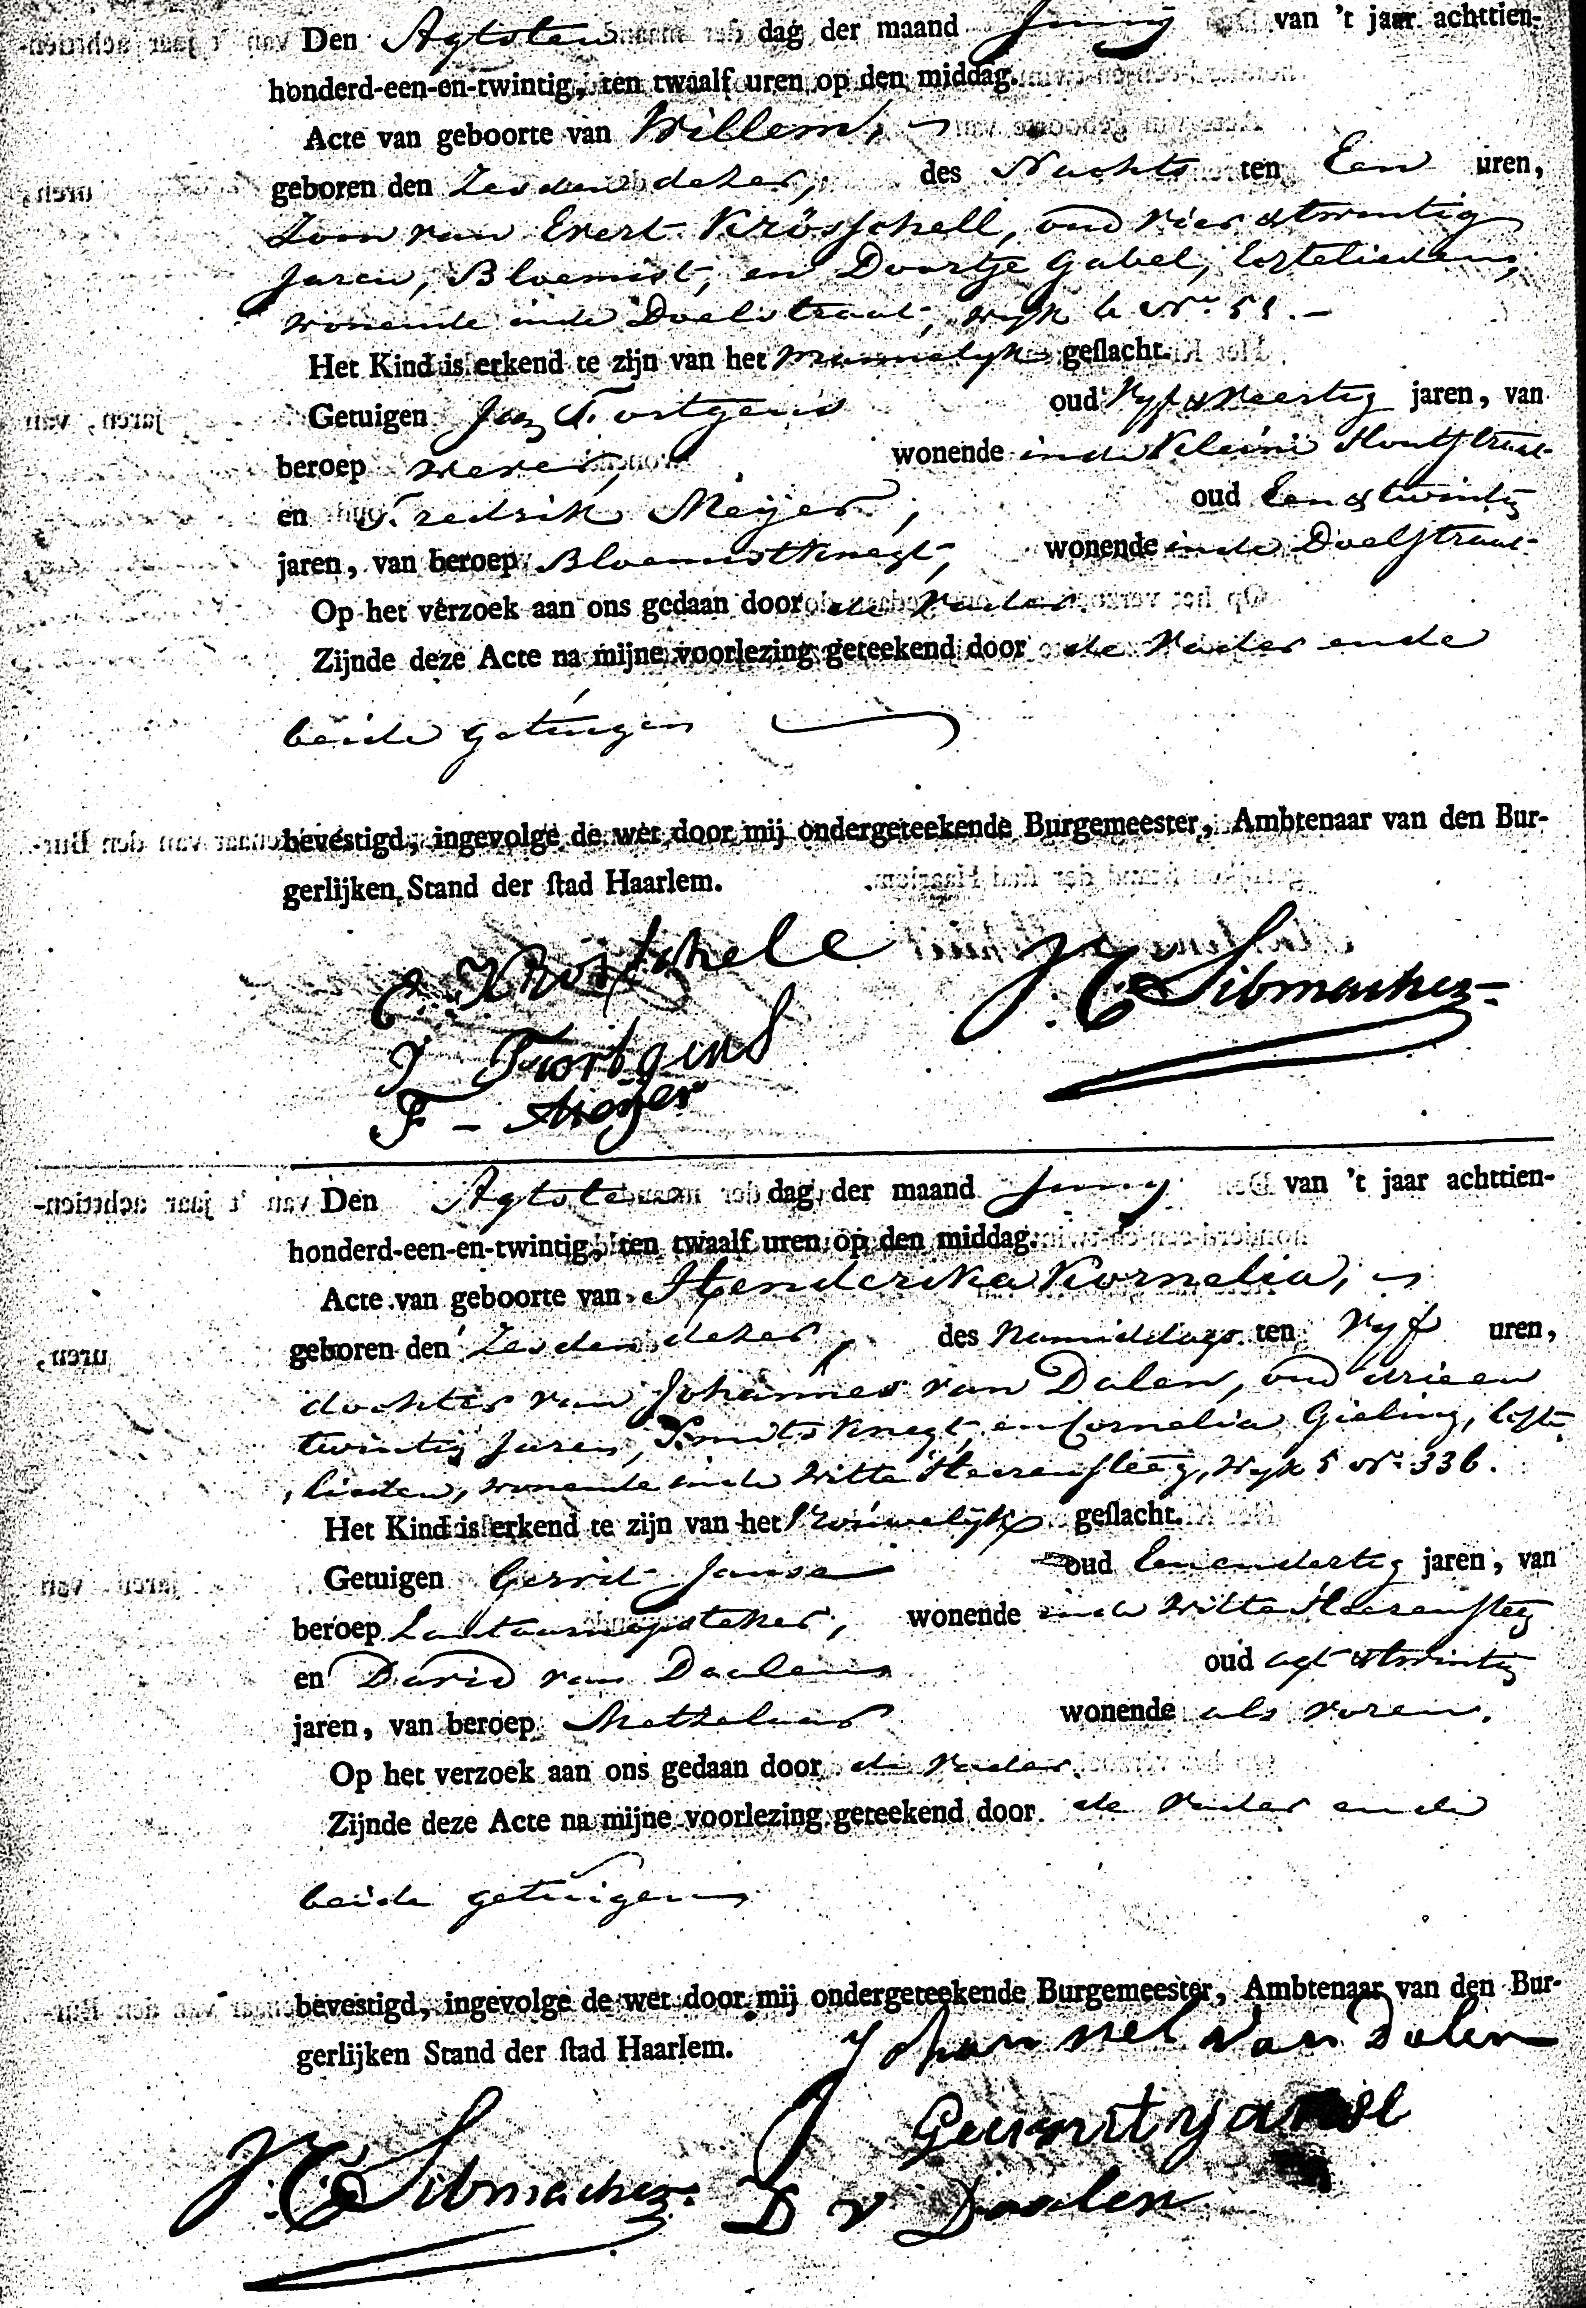 Den Agtsten dag der maand Juny van 't jaar achttien-
honderd-een-en-twintig, ten twaalf uren op den middag.
Acte van geboorte van Willem,
geboren den Zesden dezer, des Nachts ten Een uren,
Zoon van Evert Krösschell, oud vier & twintig
Jaren, Bloemist, en Doortje Gabel, Egtelieden,
wonende inde Doelstraat, wyk 6 No. 51.
Het Kind is erkend te zijn van het mannelyke geslacht.
Getuigen Jan Fortgens oud Vyf & Veertig jaren, van
beroep wever, wonende inde Kleine Houtstraat
en Fredrik Meijer, oud Een & twintig
jaren, van beroep Bloemistknegt, wonende inde Doelstraat
Op het verzoek aan ons gedaan door de Vader
Zijnde deze Acte na mijne voorlezing geteekend door de Vader en de
beide getuigen
bevestigd, ingevolge de wet door mij ondergeteekende Burgemeester, Ambtenaar van den Bur-
gerlijken Stand der stad Haarlem.
E. Krösschell
J C Sibmacher
J Fortgens
F - Meyer
Den Agtsten dag der maand Juny van 't jaar achttien-
honderd-een-en-twintig, ten twaalf uren op den middag.
Acte van geboorte van Henderika Kornelia,
geboren den Zesden dezer, des Namiddags ten Vyf uren,
dochter van Johannes van Dalen, oud drieen
twintig Jaren, Smitsknegt, en Cornelia Gieling, Egte
lieden, wonende inde Witte Heerensteeg, Wyk 5 No. 336.
Het Kind is erkend te zijn van het Vrouwelyke geslacht.
Getuigen Gerrit Janse oud Eenendertig jaren, van
beroep Lantaarnopsteker, wonende inde Witte Heerensteeg
en David van Daalen oud agt & twintig
jaren, van beroep Metzelaar wonende als voren.
Op het verzoek aan ons gedaan door de Vader.
Zijnde deze Acte na mijne voorlezing geteekend door de Vader en de
beide getuigen
bevestigd, ingevolge de wet door mij ondergeteekende Burgemeester, Ambtenaar van den Bur-
gerlijken Stand der stad Haarlem.
Johannes van Dalen
J C Sibmacher
D v Daalen